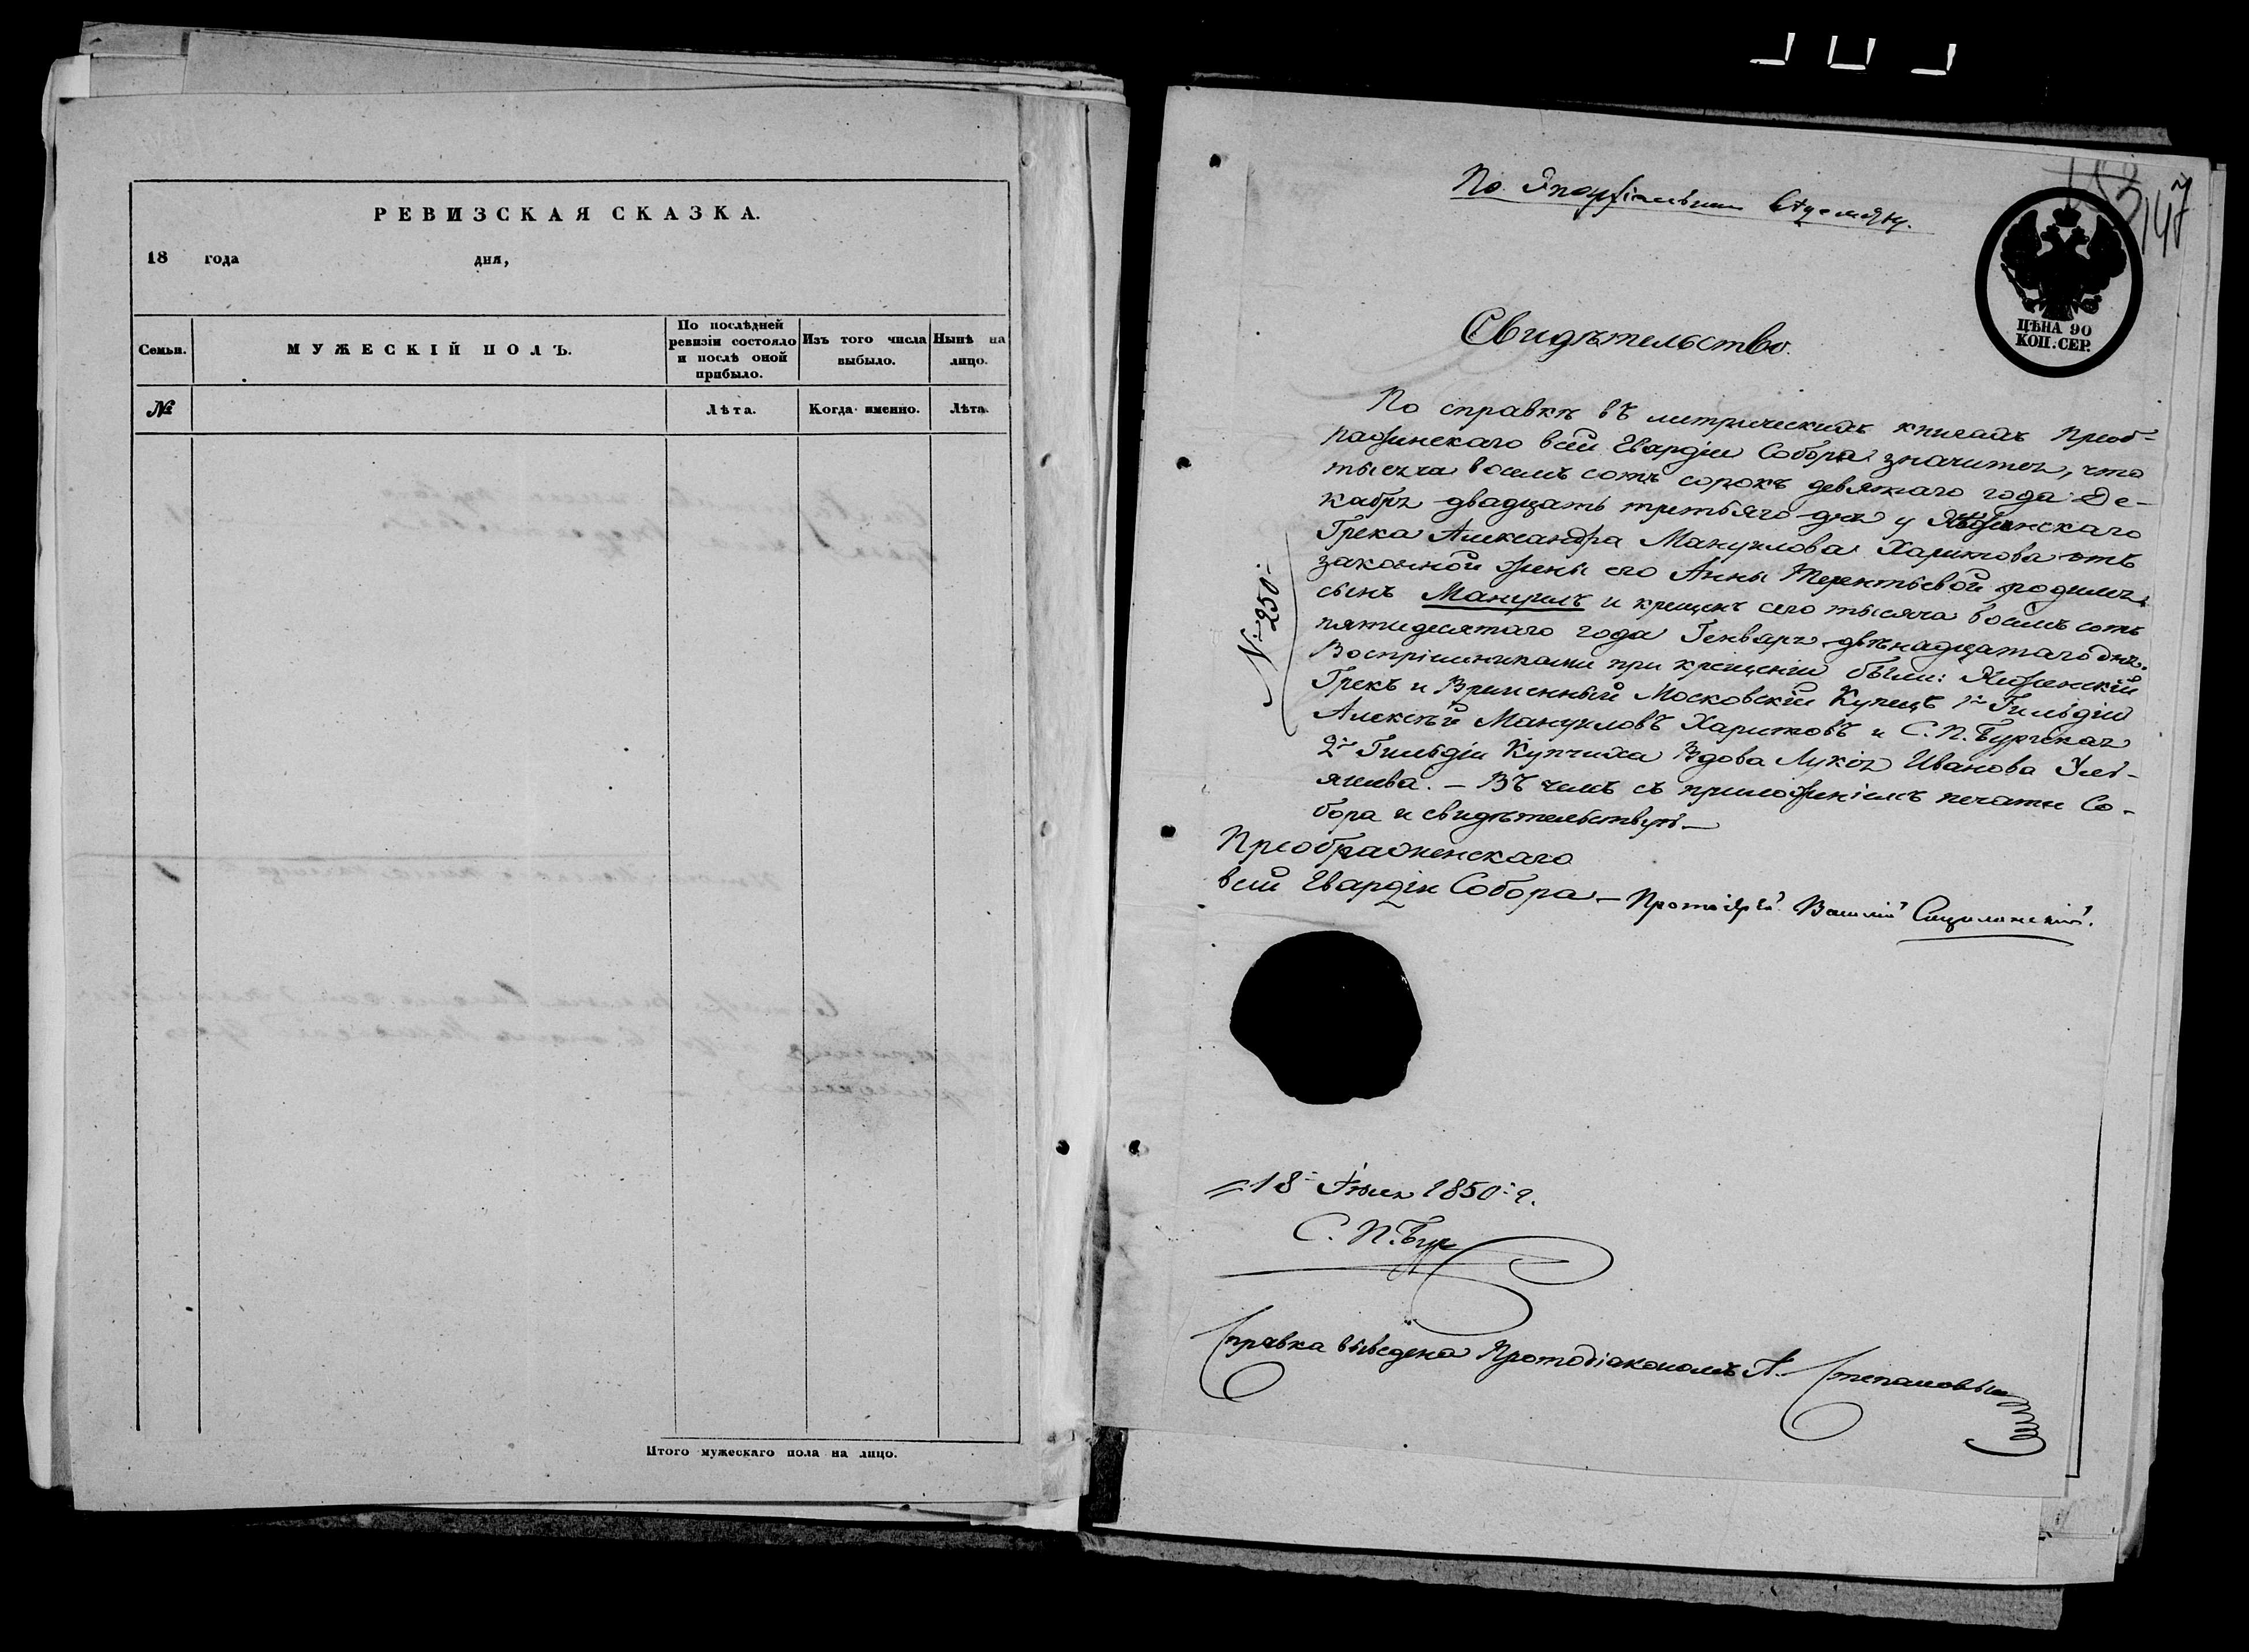 РЕВИЗСКАЯ СКАЗКА.
18 года дня,
Семьи.
МУЖЕСКІЙ ПОЛЪ.
По послѣдней ревизіи состояло и послѣ оной прибыло.
Изъ того числа выбыло.
Нынѣ на лицо.
№
Лѣта.
Когда именно.
Лѣта.
Итого мужескаго пола на лицо.
147
По
ЦѢНА 90
КОП. СЕР.
Свидѣтельство.
По справкѣ въ метрическихъ книгахъ Преоб-
раженскаго всей Гвардіи Собора значится, что
тысяча восемь сотъ сорокъ девятаго года Де-
кабря двадцать третьяго дня у Нѣжинскаго
Грека Александра Мануилова Харитова отъ
законной жены его Анны Терентьевой родился
сынъ Мануилъ и крещенъ сего тысяча восемь сотъ
пятидесятаго года Генваря двѣнадцатаго дня.
Воспріемниками при крещеніи были: Нѣжинскій
Грекъ и Временный Московскій Купецъ 1й Гильдіи
Алексѣй Мануиловъ Харитовъ и С. П. Бургская
2й Гильдіи Купчиха Вдова Лукія Иванова
В чемъ съ приложеніемъ печати Со-
бора и свидѣтельствую —
№ 250.
Преображенскаго
всей Гвардіи Собора — Протоіерей Василій
18 Іюля 1850 г.
С. П. Бург
Справка выведена Протодіакономъ А. Степановымъ